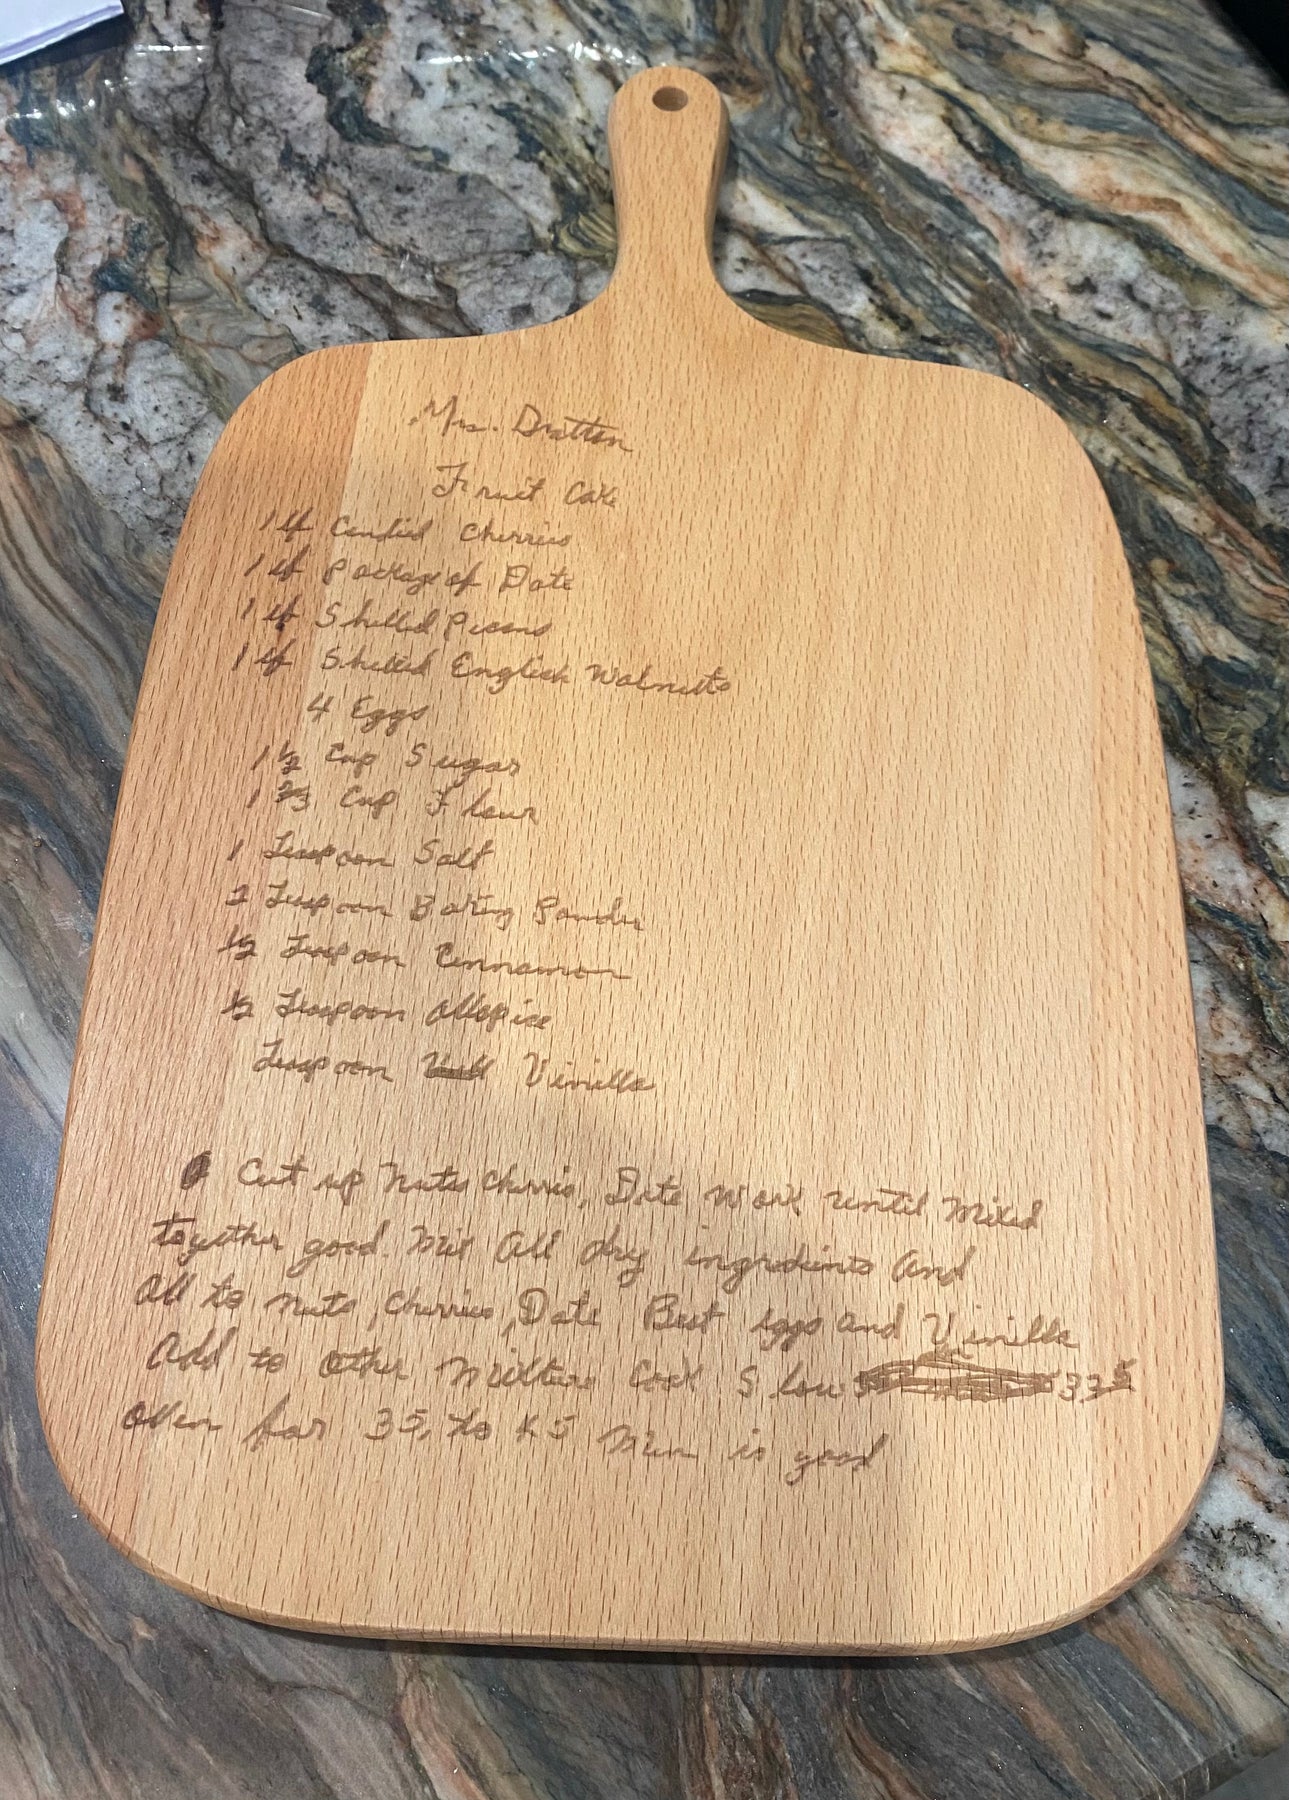 Mrs. Dratten
Fruit Cake
1 lb Candied Cherries
1 lb Package of Date
1 lb Shelled Pecans
1 lb Shelled English Walnutts
4 Eggs
1 1/2 Cup Sugar
1 2/3 Cup Flour
1 Teaspoon Salt
2 Teaspoon Baking Powder
1/2 Teaspoon Cinnamon
1/2 Teaspoon Allspice
Teaspoon Vinilla
Cut up Nuts Cherries, Date Work until Mixed
together good. Mix All dry ingredients And
All to nuts, Cherries, Date Beat Eggs and Vinilla
Add to other Mixture Cook Slow 335
oven for 35, to 45 Min is good